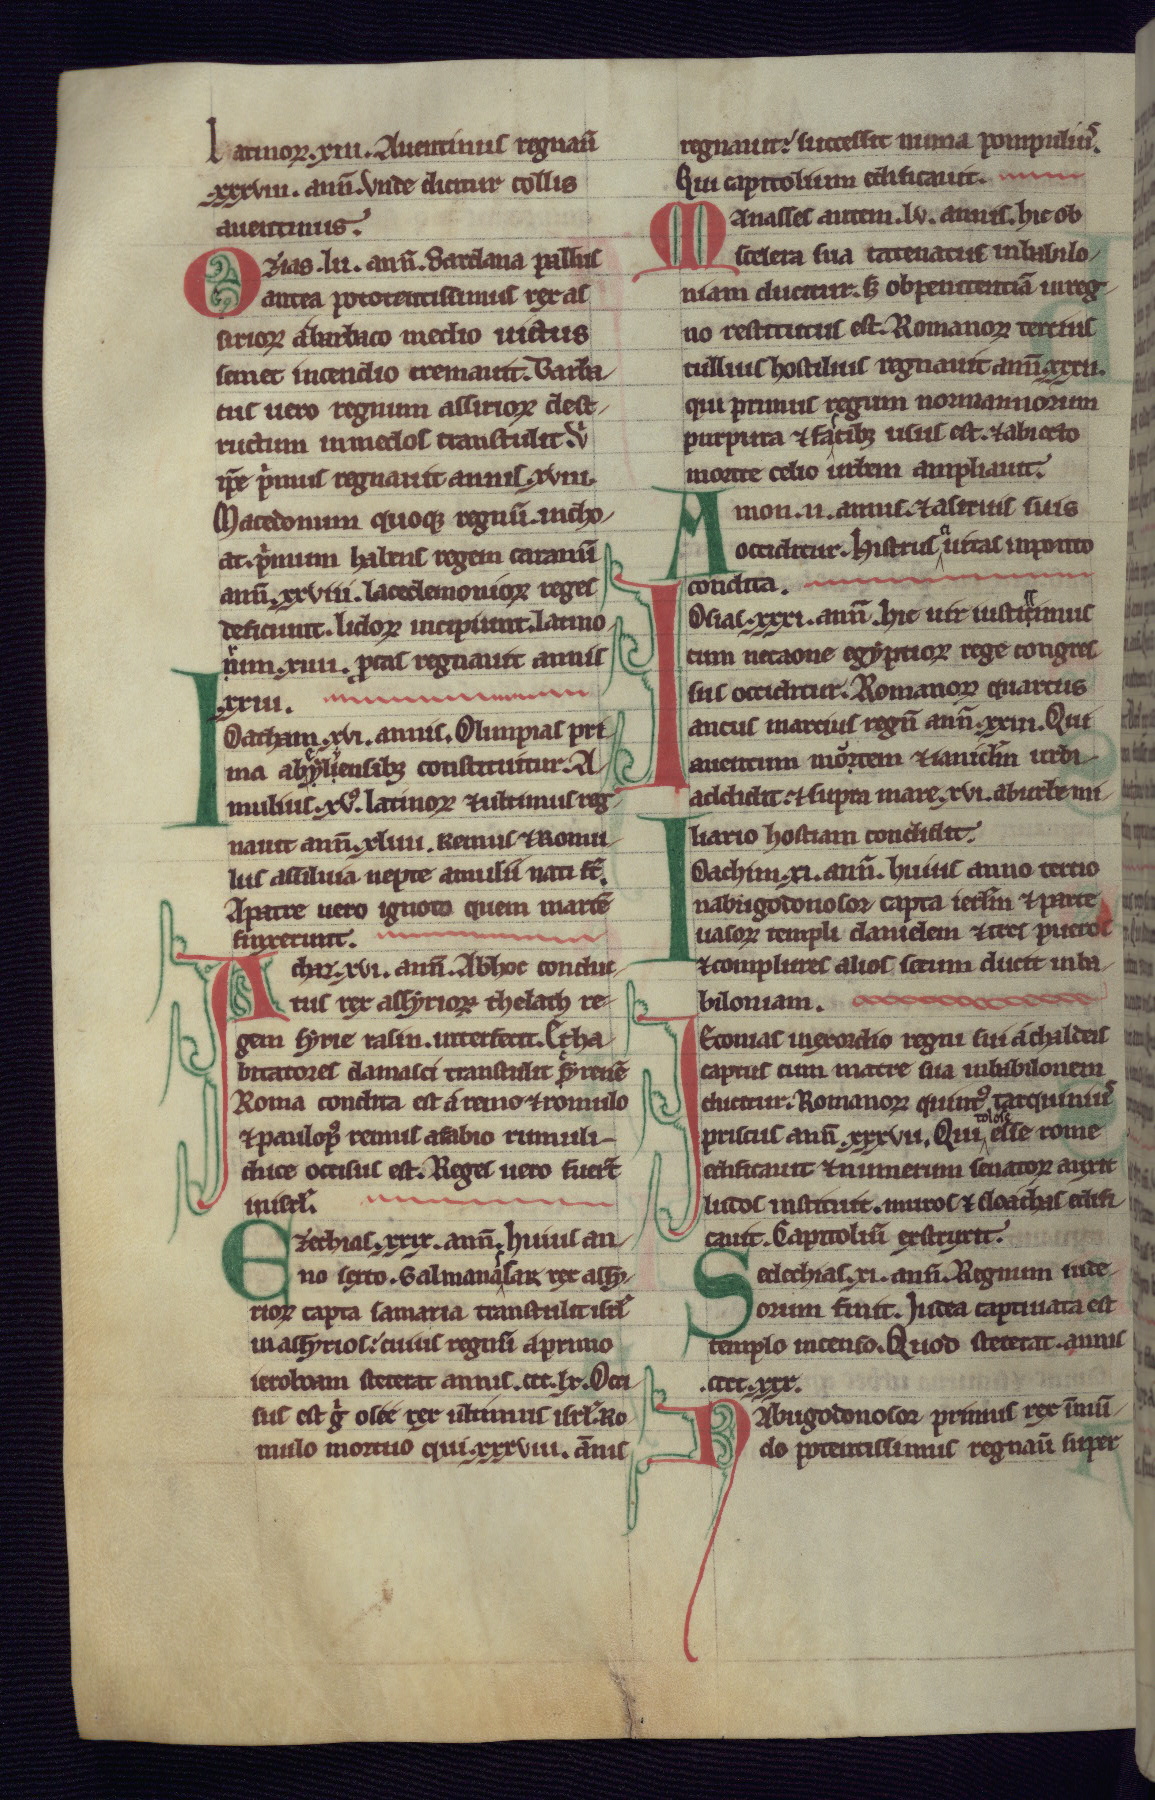 Latinoꝝ .xiii. Auentinus regnaū
.xxxviii. ann̄. Vnde dicitur collis
auentinus.
Ozias .lii. ann̄. Sardana pallus
antea pototentissimus rex as
sirioꝝ a barbaco medio uictus
semet incendio cremauit. Garba
tus uero regnum assirioꝝ dest-
ructum in medos transtulit
ip̄e p̓mus regnauit annis .xviii.
Macedonum quoqꝫ regnū incho-
at. p̓mum habens regem caranū
ann̄. xxviii. lacedemonioꝝ reges
deficiunt. lidoꝝ incipiunt. Latino
.xiiii. pcas regnauit annis
xxiii.
Ioacham .xvi. annis. Olimpias pri
ma ab constituitur. A
mulius .xv. latinoꝝ ⁊ ultimus reg-
nauit ann̄. xliiii. Remus ⁊ Romu
lus assiluia nepte amulii nati st̄.
A patre uero ignoto quem martē
finxerunt.
Achaz .xvi. ann̄. Ab hoc conduc-
tus rex assyrioꝝ thelach re-
gem syrie rasin. interfecit. Et ha-
bitatores damasci transtulit
Roma condita est a remo ⁊ romulo
⁊ paulop̄ remus a fabio rumuli-
duce occisus est. Reges uero fuer̄t
in isrl̄.
Ezechias .xxix. ann̄. huius an-
no sexto. Salmanasar rex assy-
rioꝝ capta samaria transtulit isrl̄
in assyrios. cuius regnū a primo
ieroboam steterat annis .ccc.lx. Occi
sus est g̓ osee rex ultimus isrl̄. Ro
mulo mortuo qui .xxxviii. annis
regnauit. successit numa pompilius.
Qui capitolium edificauit.
Manasses autem .lv. annis. hic ob
scelera sua catenatus in babilo-
niam ducitur. sꝫ ob penitentiā in reg-
no restitutus est. Romanoꝝ tercius
tullius hostilius regnauit ann̄. xxxii.
qui primus regum normannorum
purpura ⁊ facibꝫ usus est. ⁊ abiecto
monte celio urbem ampliauit.
Amon .ii. annis. ⁊ a seruis suis
occiditur. Histrus ciuitas in ponto
condita.
Iosias .xxxi. ann̄. Hic uir iustissimus
cum necaone egyptioꝝ rege congres
sus occiditur. Romanoꝝ quartus
ancus marcius regn̄ ann̄. xxiii. Qui
auentum mortem ⁊ ianiclm̄ urbi
addidit. ⁊ supra mare .xvi. ab urbe mi
liario hostiam condidit.
Ioachim .xi. ann̄. huius anno tertio
nabugodonosor capta ierlm̄ ⁊ parte
uasoꝝ templi danielem ⁊ tres pueros
⁊ complures alios secum ducit in ba-
biloniam.
Ieconias in exordio regni sui a chaldeis
captus cum matre sua in babilonem
ducitur. Romanoꝝ quint᷒ tarquinius
priscus ann̄ .xxxvii. Qui esse rome
edificauit ⁊ numerum senatoꝝ auxit
ludos instituit. muros ⁊ cloachas edifi-
cauit. Capitoliū exstruxit.
Sedechias .xi. ann̄. Regnum iude-
orum finit. Iudea captiuata est
templo incenso. Quod steterat annis
.cccc.xxx.
Nabugodonosor primus rex in
do potentissimus regnaū super